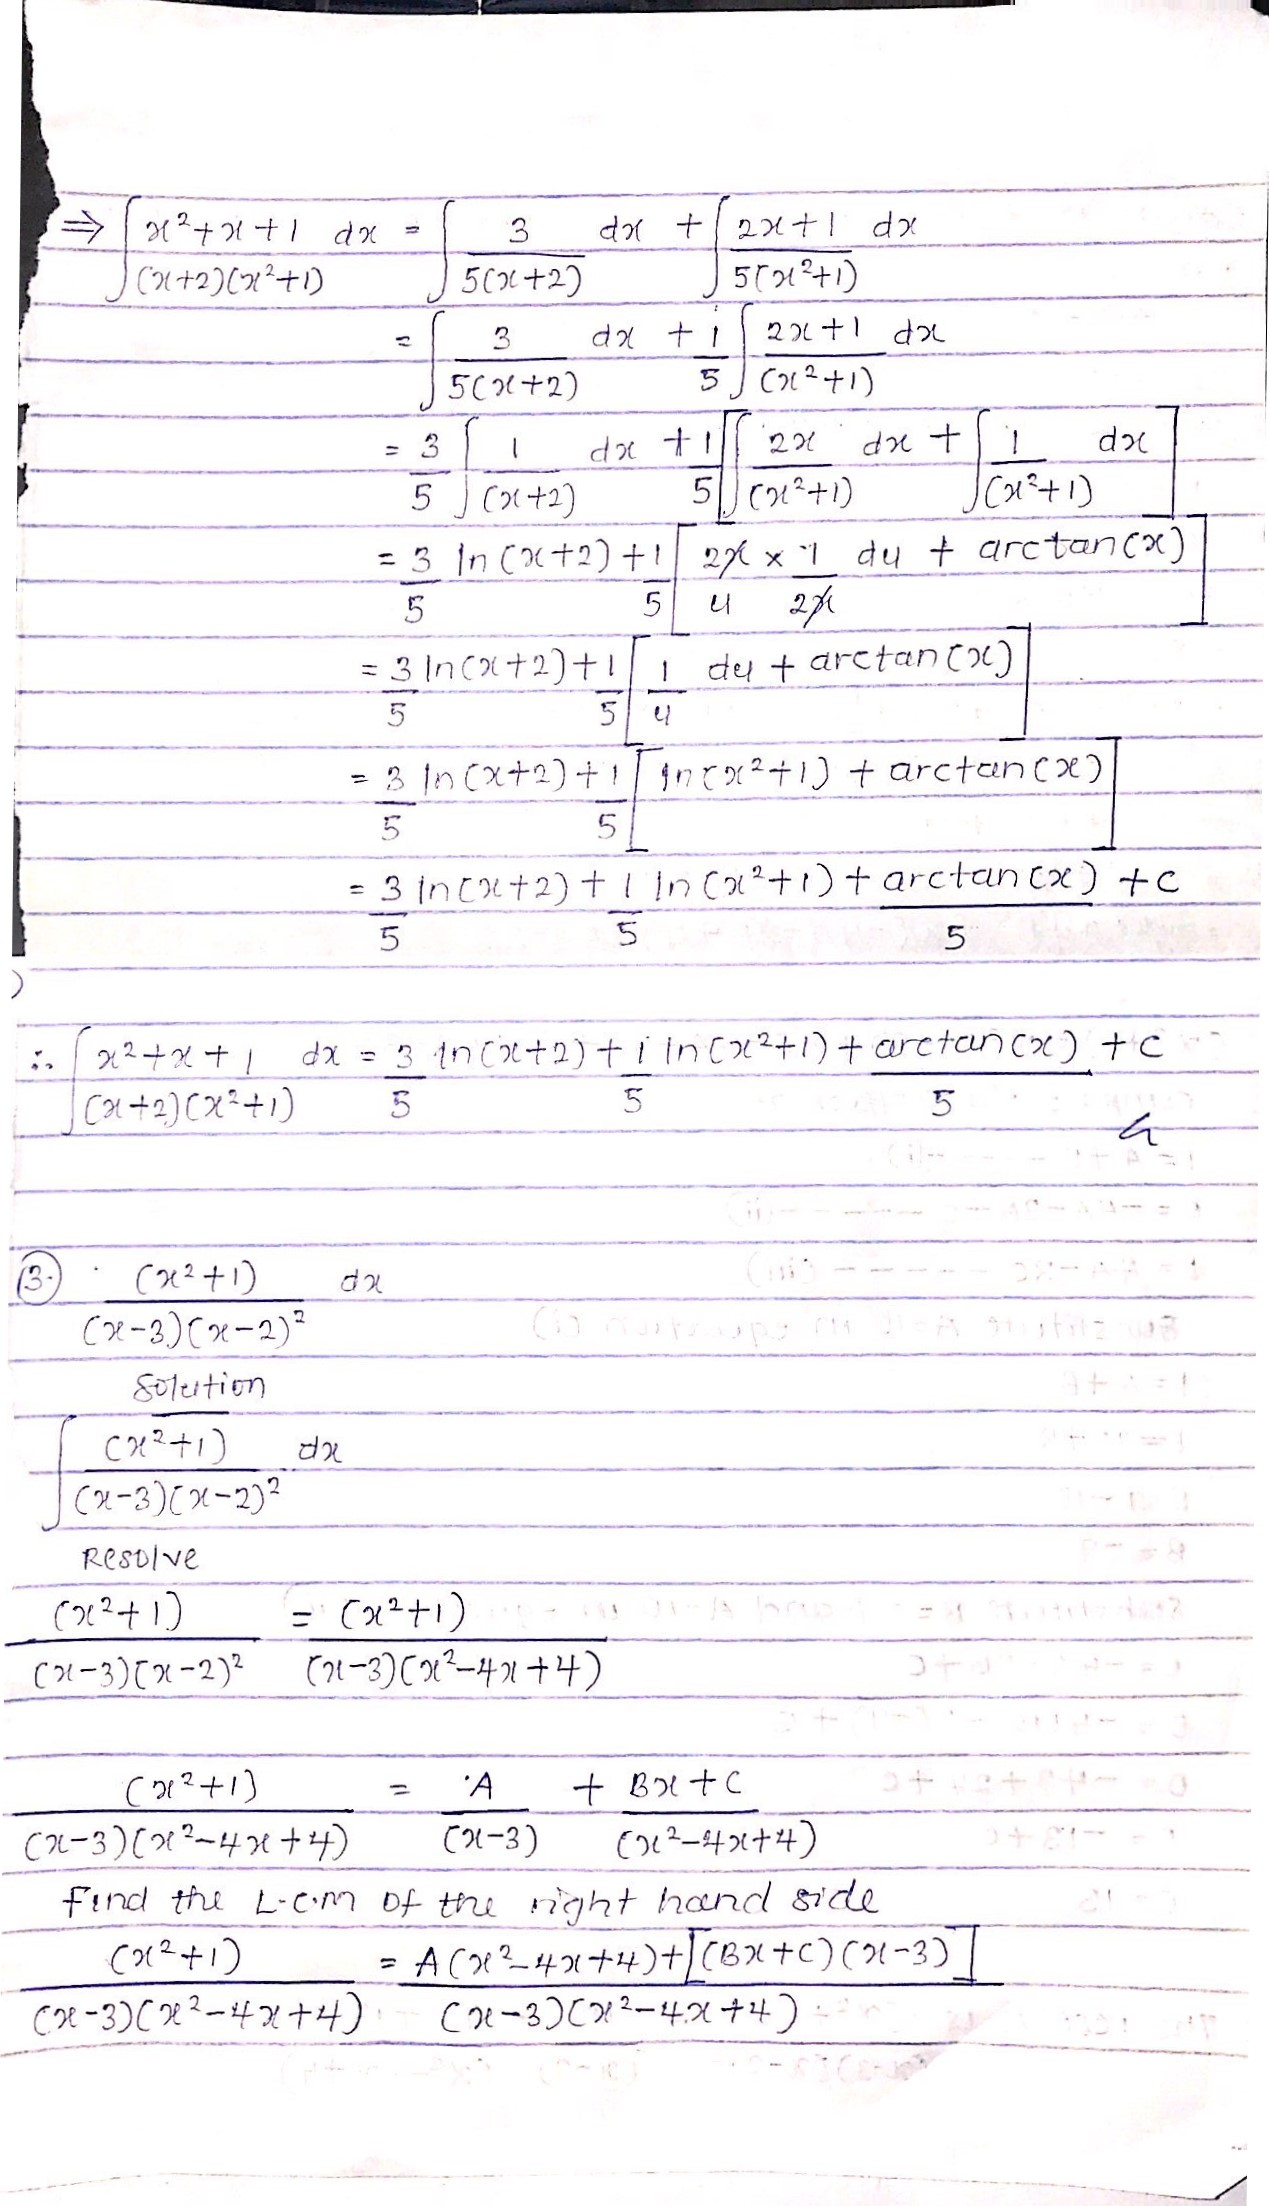 ⇒ ∫ x²+x+1 / (x+2)(x²+1) dx = ∫ 3 / 5(x+2) dx + ∫ 2x+1 / 5(x²+1) dx
= ∫ 3 / 5(x+2) dx + 1/5 ∫ 2x+1 / (x²+1) dx
= 3/5 ∫ 1 / (x+2) dx + 1/5 [∫ 2x / (x²+1) dx + ∫ 1 / (x²+1) dx]
= 3/5 ln(x+2) + 1/5 [2x/u × 1/2x du + arctan(x)]
= 3/5 ln(x+2) + 1/5 [1/u du + arctan(x)]
= 3/5 ln(x+2) + 1/5 [ln(x²+1) + arctan(x)]
= 3/5 ln(x+2) + 1/5 ln(x²+1) + arctan(x)/5 + c
∴ ∫ x²+x+1 / (x+2)(x²+1) dx = 3/5 ln(x+2) + 1/5 ln(x²+1) + arctan(x)/5 + c
3. (x²+1) / (x-3)(x-2)² dx
Solution
∫ (x²+1) / (x-3)(x-2)² dx
Resolve
(x²+1) / (x-3)(x-2)² = (x²+1) / (x-3)(x²-4x+4)
(x²+1) / (x-3)(x²-4x+4) = A / (x-3) + Bx+C / (x²-4x+4)
Find the L.C.M of the right hand side
(x²+1) / (x-3)(x²-4x+4) = A(x²-4x+4)+[(Bx+C)(x-3)] / (x-3)(x²-4x+4)